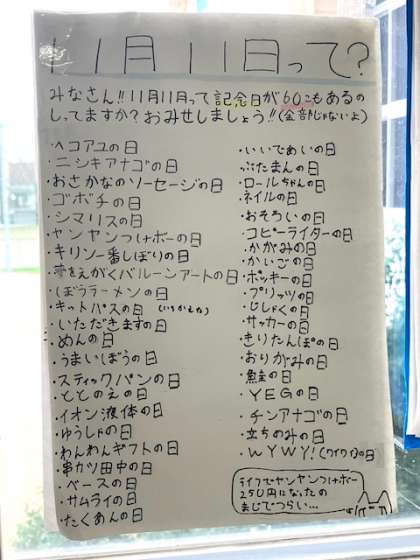 11月11日って?
みなさん!!11月11日って記念日が60こもあるの
しってますか?おみせしましょう!!(全部じゃないよ)
・ヘコアユの日
・ニシキアナゴの日
・おさかなのソーセージの日
・ゴボチの日
・シマリスの日
・ヤンヤンつけボーの日
・キリン一番しぼりの日
・夢をえがくバルーンアートの日
・しぼうラーメンの日
・キットパスの日
・いただきますの日
・めんの日
・うまいぼうの日
・スティックパンの日
・ととのえの日
・イオン液体の日
・ゆうしゃの日
・わんわんギフトの日
・串カツ田中の日
・ベースの日
・サムライの日
・たくあんの日
・いいであいの日
・ぶたまんの日
・ロールちゃんの日
・ネイルの日
・おそろいの日
・コピーライターの日
・かがみの日
・かいごの日
・ポッキーの日
・プリッツの日
・じしゃくの日
・サッカーの日
・きりたんぽの日
・おりがみの日
・鮭の日
・YEGの日
・チンアナゴの日
・立ちのみの日
・WYWY!(ワイワイ)の日
ライフでヤンヤンつけボー
250円になったの
まじでつらい…